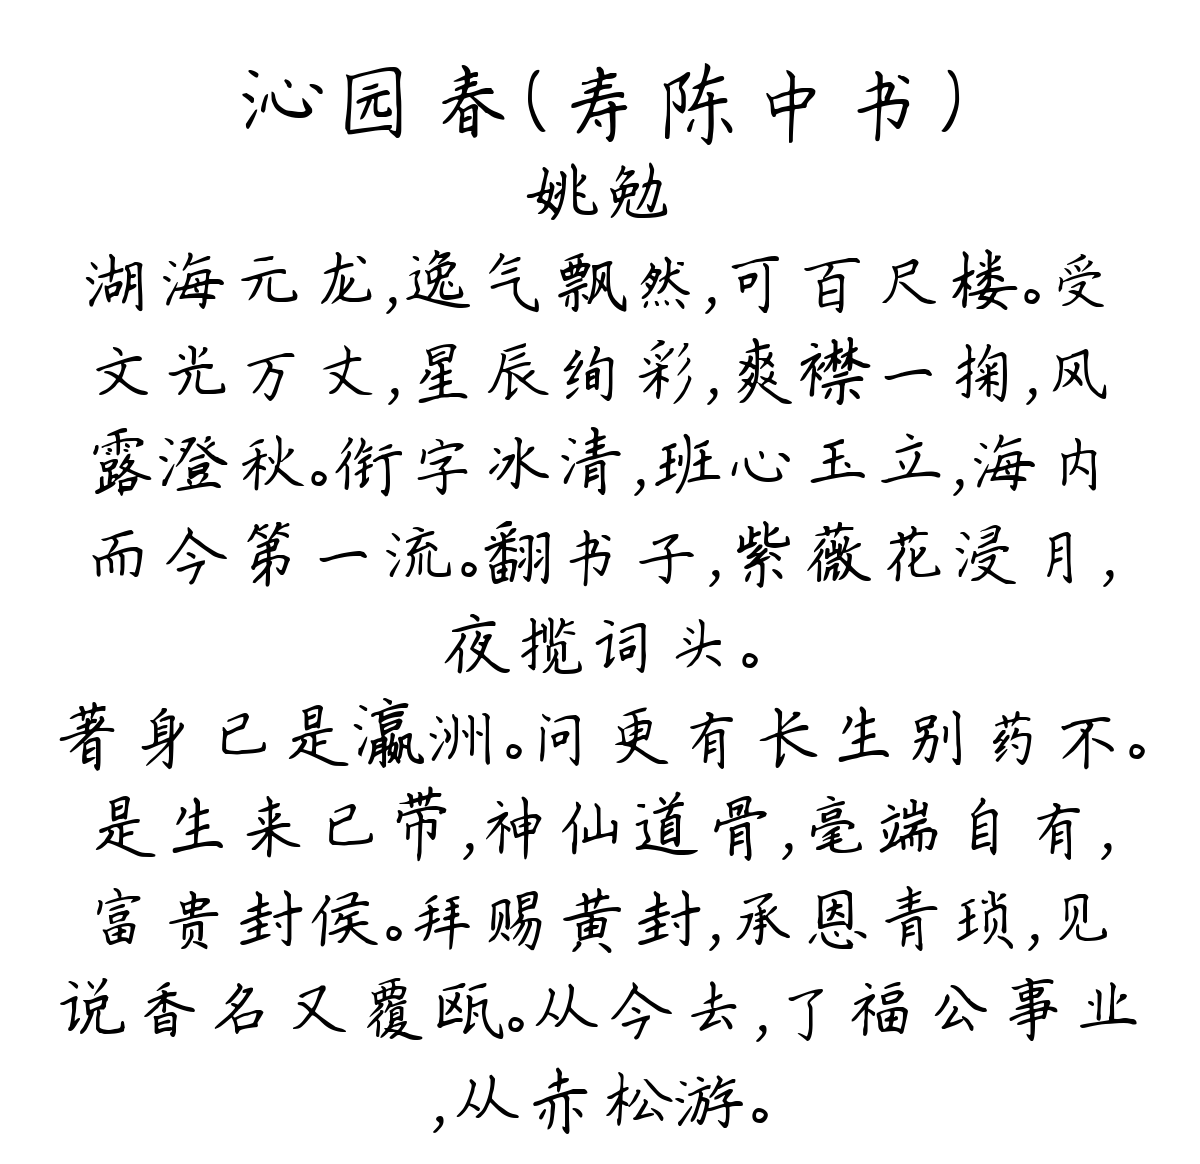 沁园春(寿陈中书)
姚勉
湖海元龙,逸气飘然,可百尺楼。受
文光万丈,星辰绚彩,爽襟一掬,风
露澄秋。衔字冰清,班心玉立,海内
而今第一流。翻书子,紫薇花浸月,
夜揽词头。
著身已是瀛洲。问更有长生别药不。
是生来已带,神仙道骨,毫端自有,
富贵封侯。拜赐黄封,承恩青琐,见
说香名又覆瓯。从今去,了福公事业
,从赤松游。